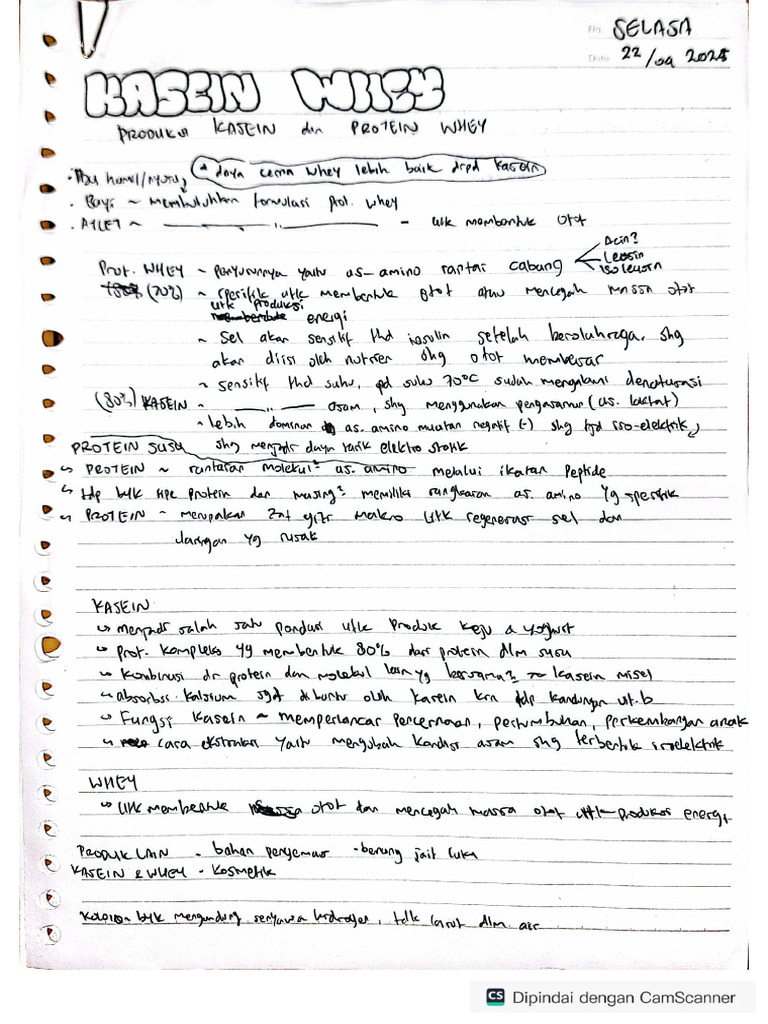 No. SELASA
Date 22/09 2025
KASEIN WHEY
PRODUKSI KASEIN dan PROTEIN WHEY
* daya cerna whey lebih baik drpd kasein
• Ibu hamil/nyusu,
• Bayi ~ Membutuhkan formulasi prot. whey
• ATLET ~ ——— .. ——— - utk membentuk otot
Prot. WHEY ~ penyusunnya yaitu as-amino rantai cabang
Leosin
isoleusin
(20%) ~ spesifik utk membentuk otot atau mencegah massa otot
utk produksi energi
~ Sel akan sensitif thd insulin setelah berolahraga, shg
akan diisi oleh nutrien shg otot membesar
~ sensitif thd suhu, pd suhu 70°C sudah mengalami denaturasi
(80%) KASEIN ~ —— .. —— asam, shg menggunakan pengasaman (as. laktat)
~ lebih dominan as. amino muatan negatif (-) shg tjd iso-elektrik,
shg menjadi daya tarik elektro statik
PROTEIN SUSU
↳ PROTEIN ~ runtaian molekul² as. amino melalui ikatan peptide
↳ tdp byk tipe protein dan masing² memiliki rangkaian as. amino yg spesifik
↳ PROTEIN ~ merupakan zat gizi makro utk regenerasi sel dan
Jaringan yg rusak
KASEIN
↳ menjadi salah satu pondasi utk produk keju & yoghurt
↳ prot. kompleks yg membentuk 80% dari protein dlm susu
↳ kombinasi dr protein dan molekul lain yg bersama² ~ kasein misel
↳ absorbsi kalsium sgt dibantu oleh kasein krn tdp kandungan vit. b
↳ Fungsi kasein ~ memperlancar pencernaan, pertumbuhan, perkembangan anak
↳ cara ekstraksi yaitu mengubah kondisi asam shg terbentuk isoelektrik
WHEY
↳ utk membentuk otot dan mencegah massa otot utk produksi energi
PRODUK LAIN - bahan penyemas - benang jait luka
KASEIN & WHEY - kosmetik
byk mengandung senyawa hidrogen, tdk larut dlm air
CS Dipindai dengan CamScanner